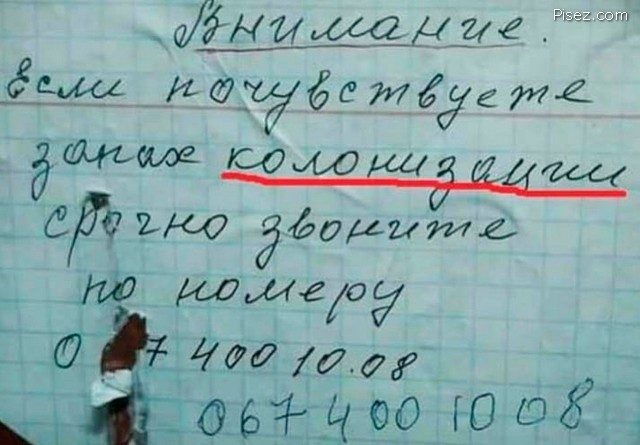 Pisez.com
Внимание.
Если почувствуете
запах колонизации
срочно звоните
по номеру
0 7 400 10.08
067 400 10 08